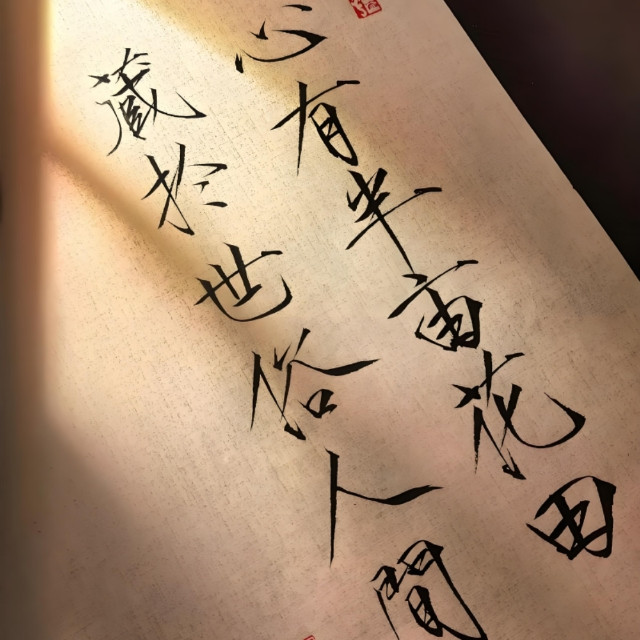 心有半亩花田
藏於世俗人間